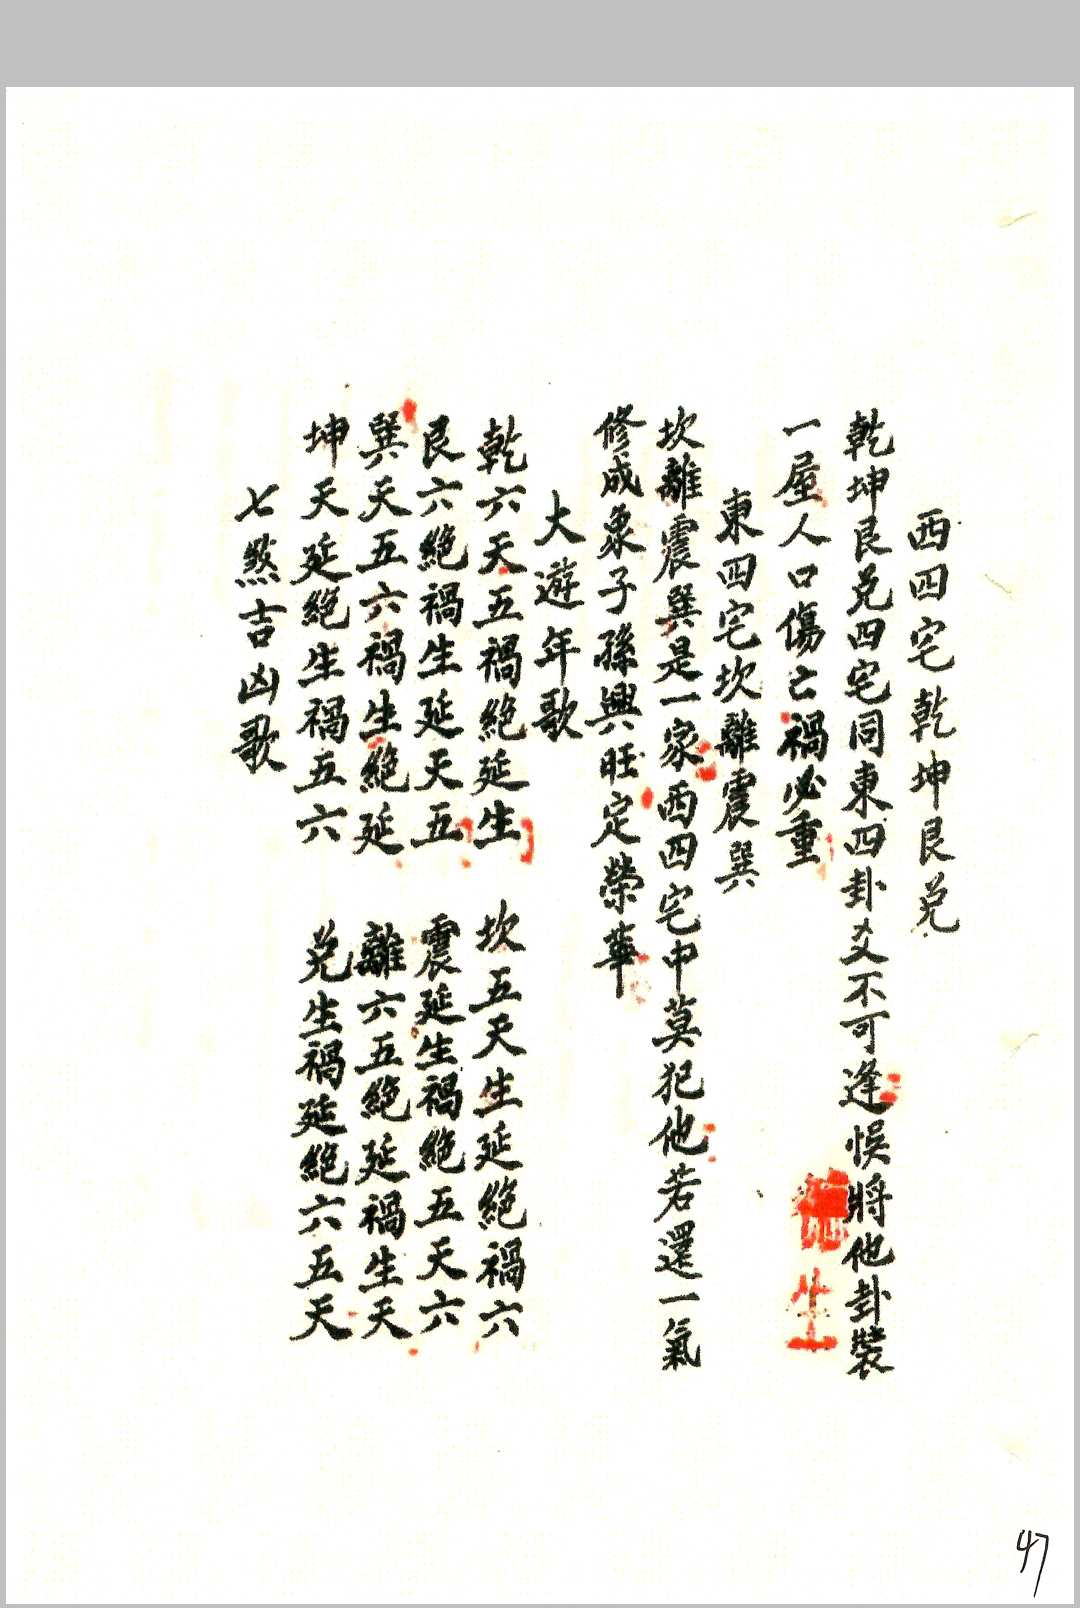 西四宅乾坤艮兑
乾坤艮兑四宅同東四卦爻不可逢悞將他卦裝
一屋人口傷亡禍必重
東四宅坎離震巽
坎離震巽是一家西四宅中莫犯他若還一氣
修成象子孫興旺定榮華
大遊年歌
乾六天五禍絕延生 坎五天生延絕禍六
艮六絕禍生延天五 震延生禍絕五天六
巽天五六禍生絕延 離六五絕延禍生天
坤天延絕生禍五六 兑生禍延絕六五天
七煞吉凶歌
47